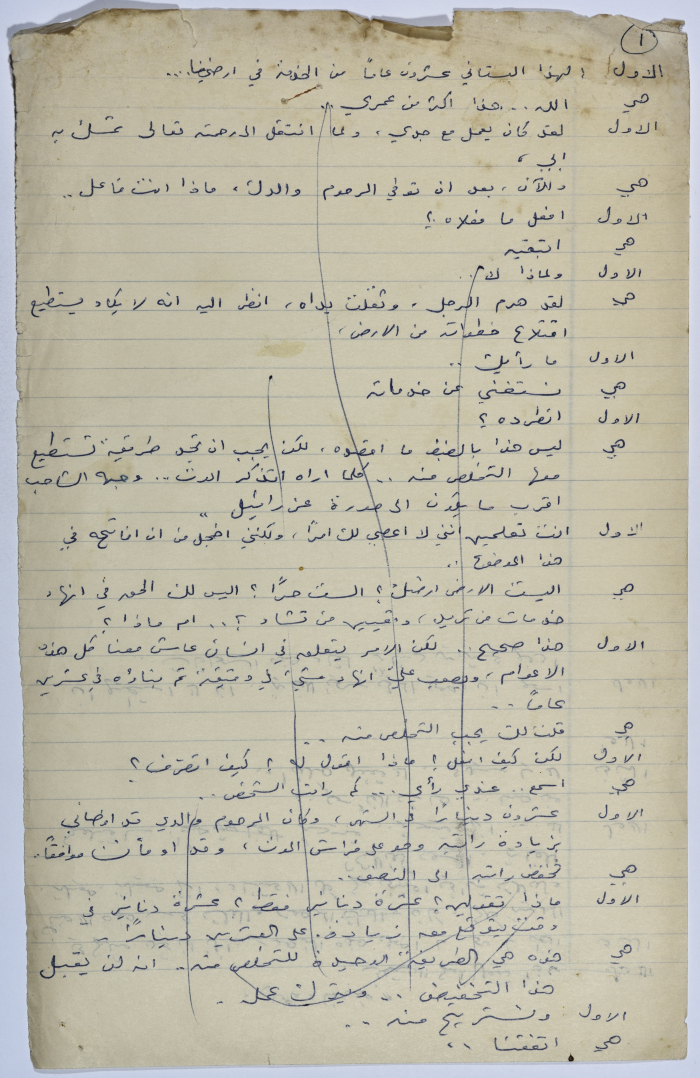 ١
الاول لهذا البستاني عشرون عاماً من الخدمة في ارضنا...
هي الله... هذا اكثر من عمري..
الاول لقد كان يعمل مع جدي، ولما انتقل الى رحمته تعالى تمسك به
ابي،
هي والآن، بعد ان توفي المرحوم والدك، ماذا انت فاعل..
الاول افعل ما فعلاه؟
هي اتبقيه
الاول ولماذا لا..
هي لقد هرم الرجل، وثقلت يداه، انظر اليه انه لا يكاد يستطيع
اقتلاع خطواته من الارض،
الاول ما رأيك..
هي نستغني عن خدماته
الاول انطرده؟
هي ليس هذا بالضبط ما اقصده، لكن يجب ان تجد طريقة تستطيع
معها التخلص منه.. كلما اراه اتذكر الموت.. وجهه الشاحب
اقرب ما يكون الى صورة عزرائيل"
الاول انت تعلمين انني لا اعصي لك امراً، ولكنني اخجل من ان افاتحه في
هذا الموضوع..
هي اليست الارض ارضك؟ الست حراً؟ اليس لك الحق في انهاء
خدمات من تريد، وتعيين من تشاء؟.. ام ماذا؟
الاول هذا صحيح.. لكن الامر يتعلق في انسان عاش معنا كل هذه
الاعوام، ويصعب علي انهاء شيء في دقيقة تم بناؤه في عشرين
عاماً..
هي قلت لك يجب التخلص منه..
الاول لكن كيف افعل؟ ماذا اقول له؟ كيف اتصرف؟
هي اسمع.. عندي رأي... كم راتب الشخص..
الاول عشرون ديناراً في الشهر، وكان المرحوم والدي قد اوصاني
بزيادة راتبه وهو على فراش الموت، وقد اومأت موافقاً..
هي تخفض راتبه الى النصف..
الاول ماذا تقولين؟ عشرة دنانير فقط؟ عشرة دنانير في
وقت يتوقع معه زيادة على العشرين ديناراً..
هي هذه هي الطريقة الوحيدة للتخلص منه.. انه لن يقبل
هذا التخفيض.. وسيترك عمله.
الاول ونستريح منه..
هي اتفقنا..